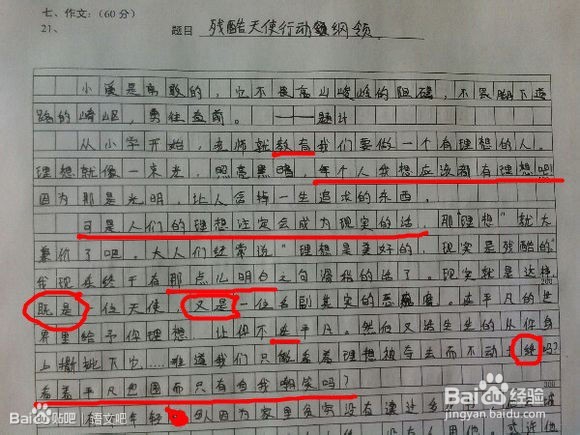 七、作文:(60分)
21、 题目 残酷天使行动纲领
小溪是勇敢的,它不畏高山峻岭的阻碍,不畏脚下道
路的崎岖,勇往直前。——题记
从小学开始,老师就教育我们要做一个有理想的人。
理想就像一束光,照亮黑暗,每个人我想应该都有理想吧!
因为那是光明,让人值得一生追求的东西。
可是人们的理想注定会成为现实的话,那"理想"就太
廉价了吧。大人们经常说"理想是美好的,现实是残酷的"
我现在终于有那点儿明白这句滑稽的话了。现实就是这样,
既是一位天使,又是一位名副其实的恶魔。在平凡的世
界里给予你理想,让你不甘平凡。然而又活生生的从你身
上撕扯下它……难道我们只能看着理想被夺去而不动
吗?
看着平凡包围而只有自我嘲笑吗?
因为家里贫穷没有读过
Baidu贴吧 | 语文吧
Baidu经验
jingyan.baidu.com